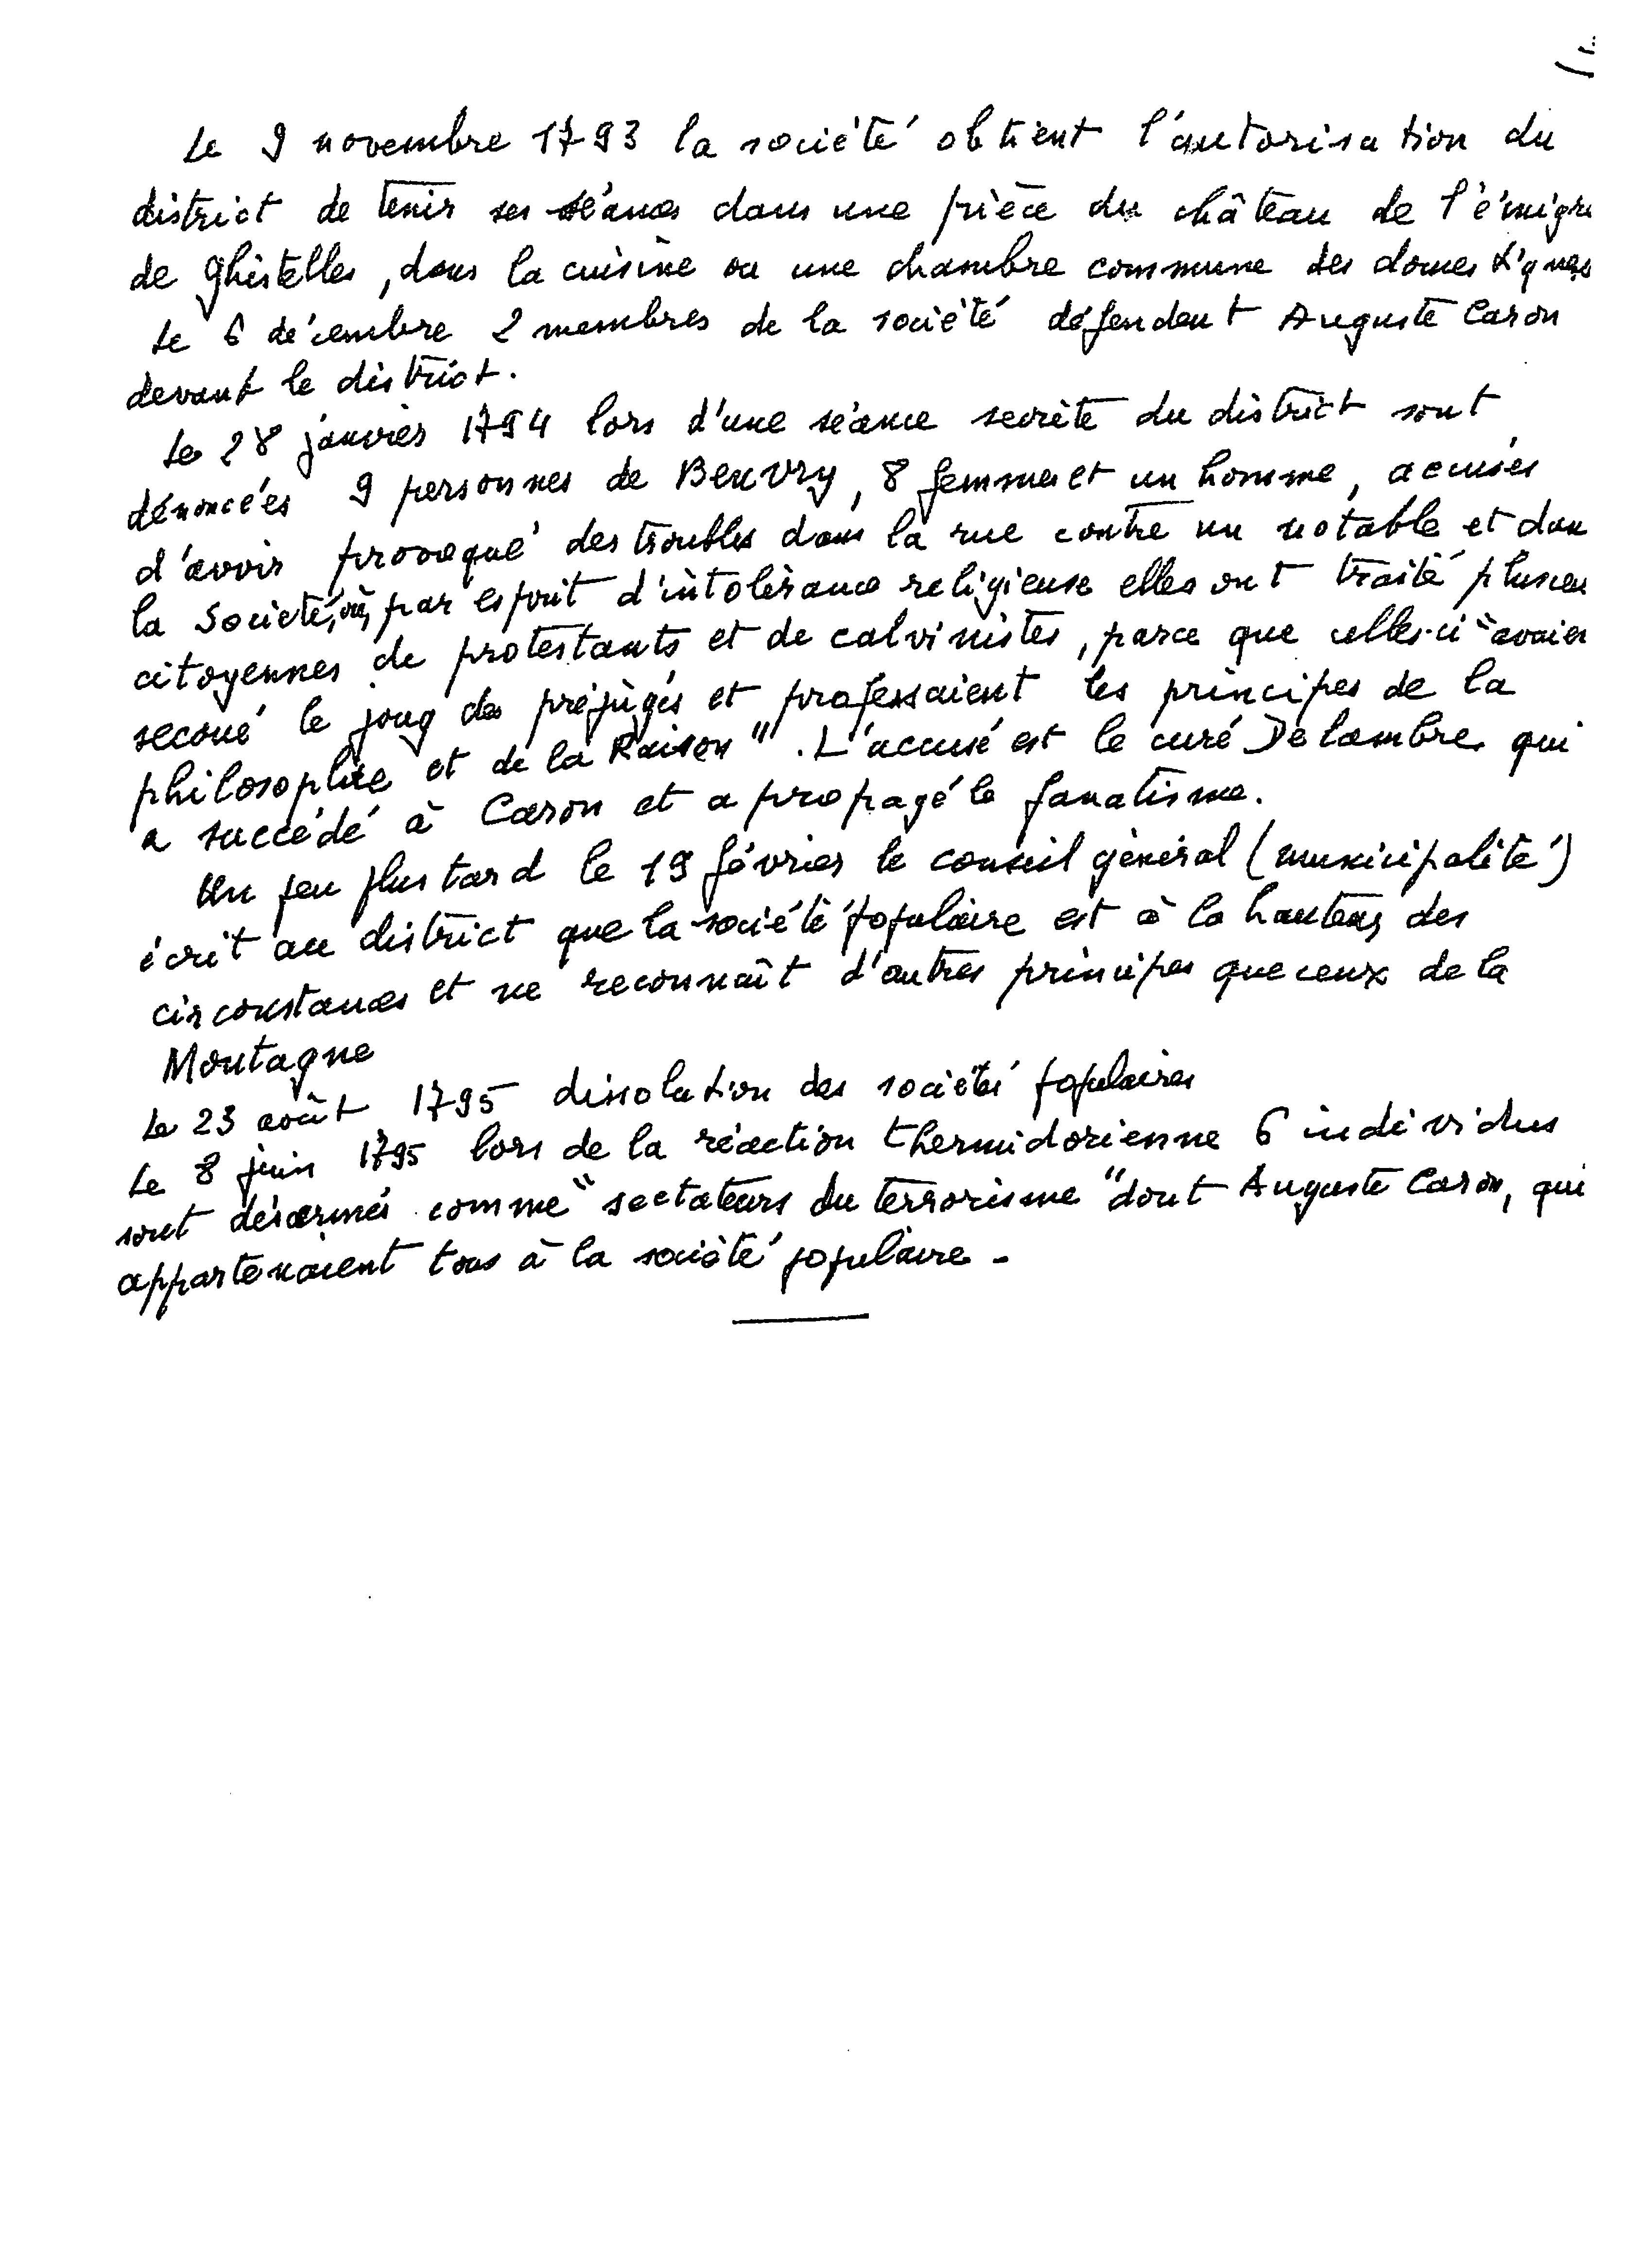 Le 9 novembre 1793 la société obtient l'autorisation du
district de tenir ses séances dans une pièce du château de l'émigré
de Ghistelles, dans la cuisine ou une chambre commune des domestiques
Le 6 décembre 2 membres de la société défendent Auguste Caron
devant le district.
Le 28 janvier 1794 lors d'une séance secrète du district sont
dénoncées 9 personnes de Beuvry, 8 femmes et un homme, accusés
d'avoir provoqué des troubles dans la rue contre un notable et dan
la Société, où, par esprit d'intolérance religieuse elles ont traité plusieu
citoyennes de protestants et de calvinistes, parce que celles-ci "avaien
secoué le joug des préjugés et professaient les principes de la
philosophie et de la Raison". L'accusé est le curé Delambre qui
a succédé à Caron et a propagé le fanatisme.
Un peu plus tard le 19 février le conseil général (municipalité)
écrit au district que la société populaire est à la hauteur des
circonstances et ne reconnaît d'autres principes que ceux de la
Montagne
Le 23 août 1795 dissolution des sociétés populaires
Le 8 juin 1795 lors de la réaction thermidorienne 6 individus
sont désarmés comme "sectateurs du terrorisme" dont Auguste Caron, qui
appartenaient tous à la société populaire -